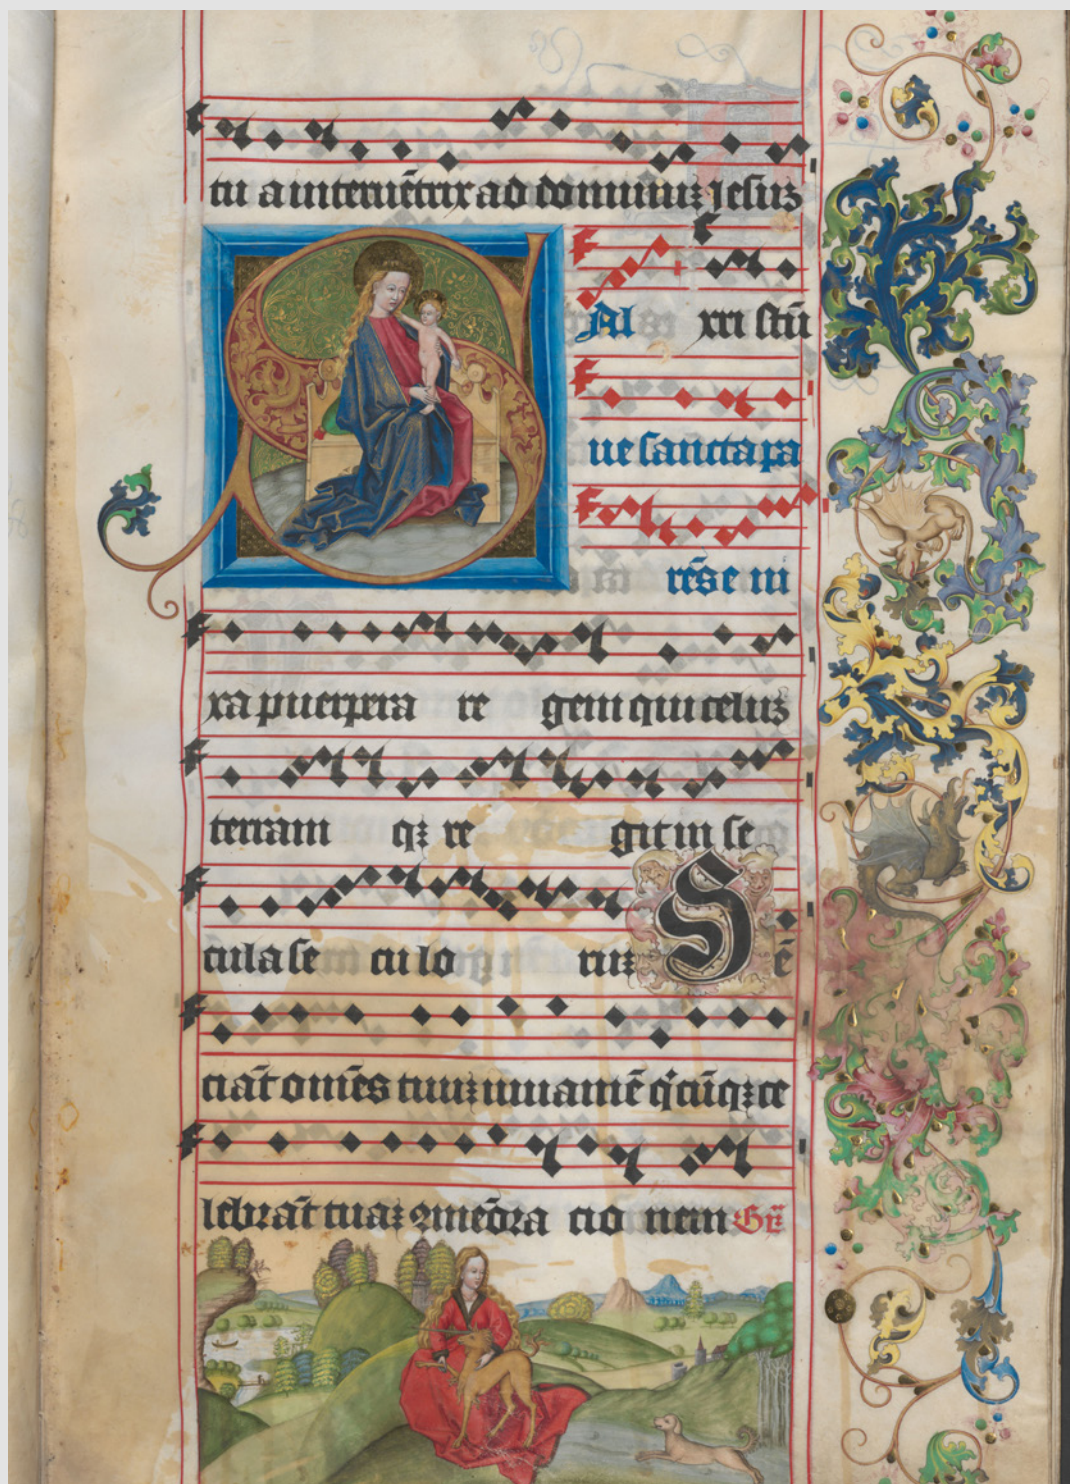 tu a interuētrix ad dominuꝫ Jesuꝫ
Al xti sētū
ue sancta pa
rēs e ni
xa puerpera re gem qui celuꝫ
terram qꝫ re git in se
cula se culo ruꝫ S ē
ciāt om̄es tuuꝫ iuuamē q̇cūqꝫ ce
lebrāt tuaꝫ ꝯmeōra cio nem